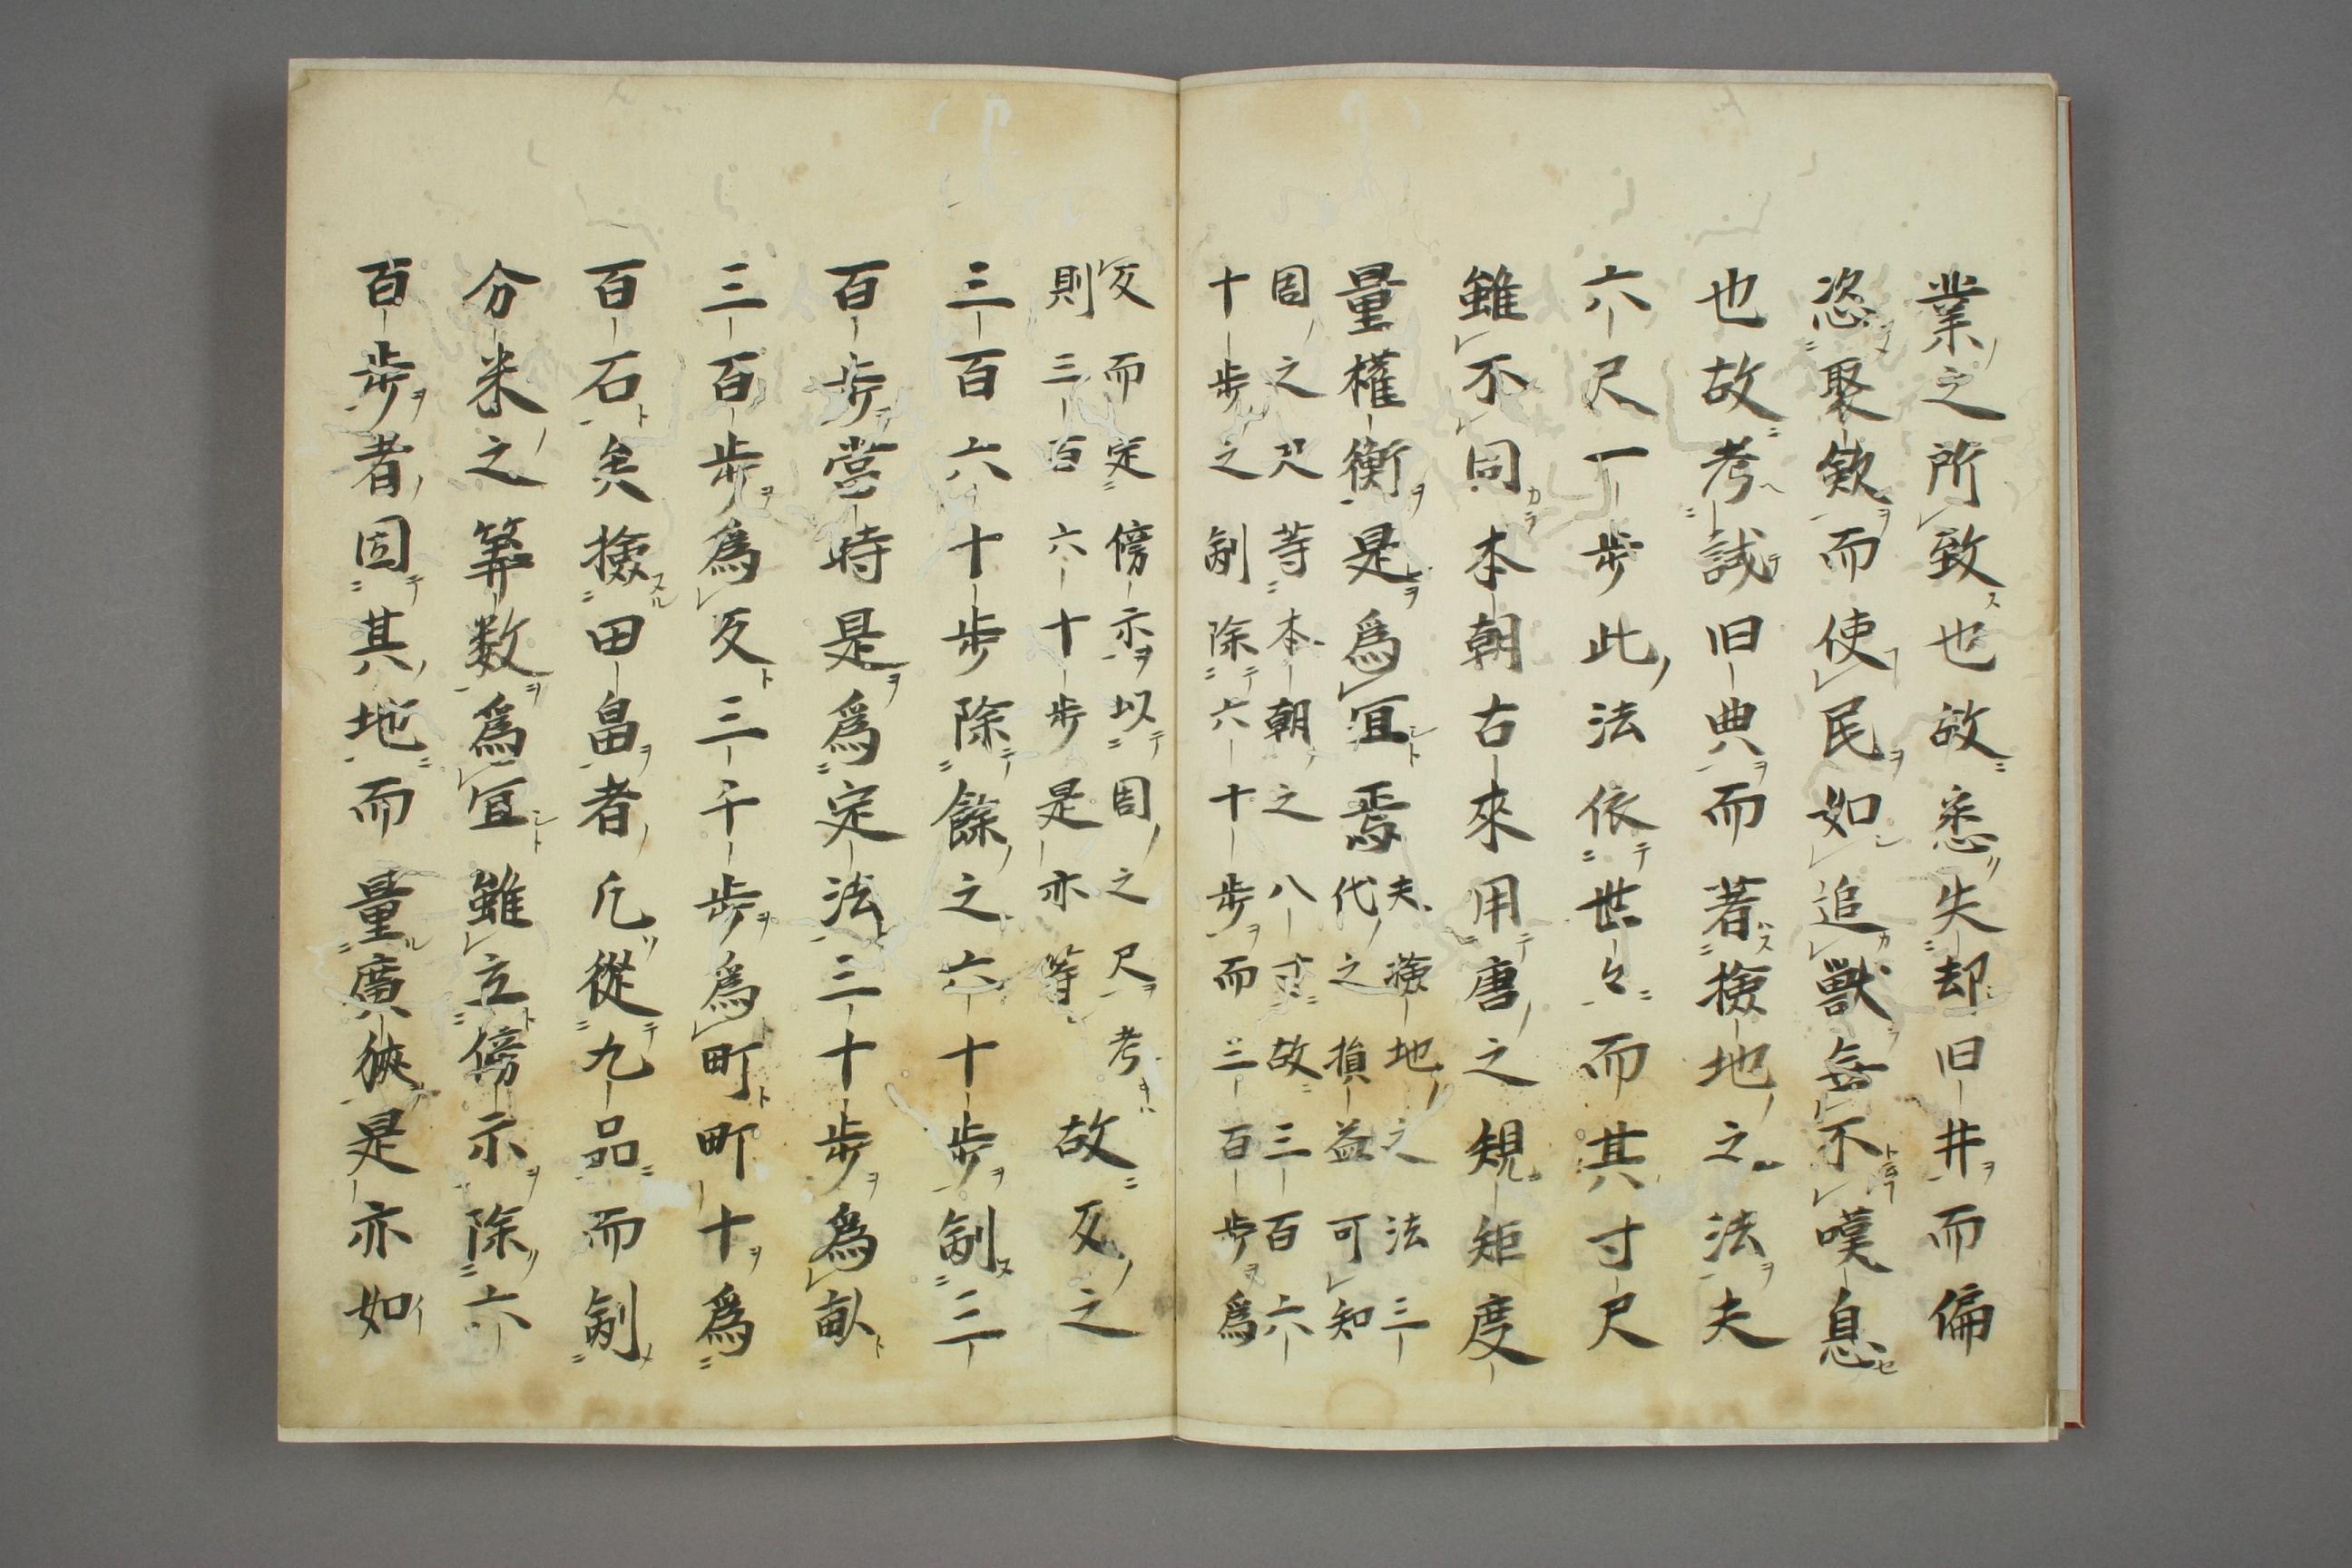 業之所致也故悉失却旧井而偏
恣聚斂而使民如追獣無不嘆息
也故考誠旧典而著撿地之法夫
六尺一歩此法依世々而其寸尺
雖不同本朝古來用唐之規矩度
量權衡是為宜焉
夫撿地之法三
代之損益可知
周之尺等本朝之八寸故三百六
十歩之剙除六十歩而三百歩為
反而定傍示以周之尺考
則三百六十歩是亦等
故反之
三百六十歩除餘之六十歩剙三
百歩當時是為定法三十歩為畝
三百歩為反三千歩為町町十為
百石矣撿田畠者凢從九品而剙
分米之筭数為宜雖立傍示除六
百歩者因其地而量廣狹是亦如